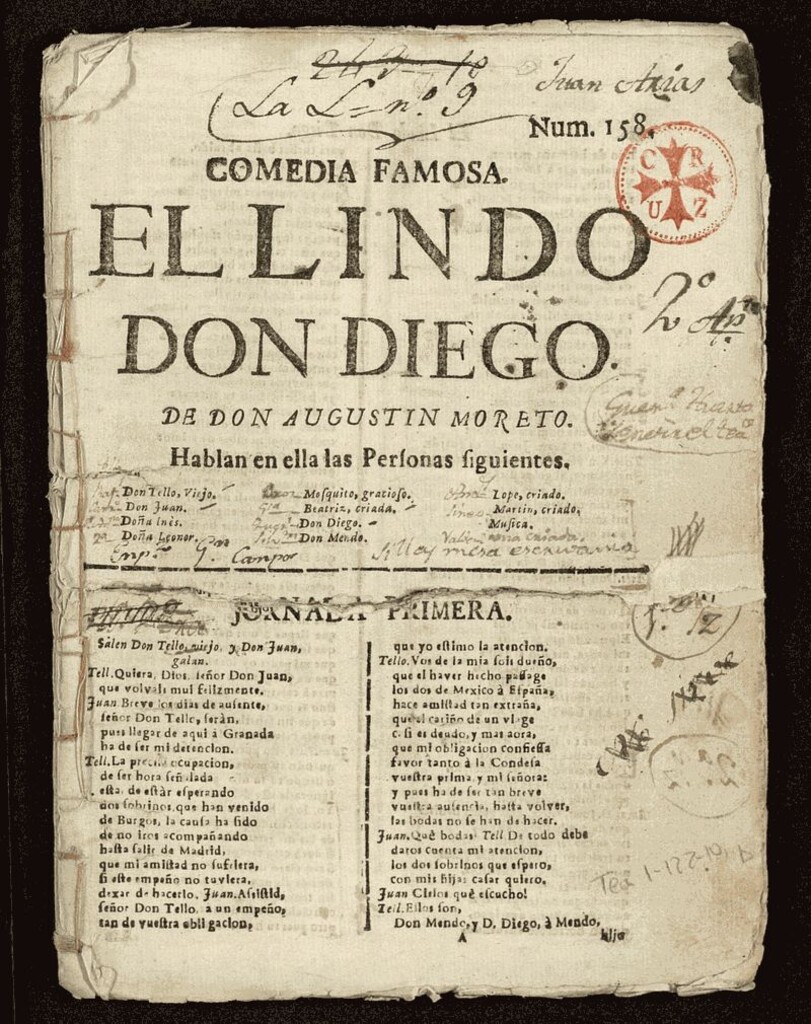 La L= nº 9
Juan Arias
Num. 158.
CRUZ
COMEDIA FAMOSA.
EL LINDO
DON DIEGO.
2º Apº
DE DON AUGUSTIN MORETO.
Hablan en ella las Perſonas ſiguientes.
Don Tello, Viejo.
Don Juan.
Doña Inès.
Doña Leonor.
Moſquito, gracioſo.
Beatriz, criada.
Don Diego.
Don Mendo.
Lope, criado.
Martin, criado.
Muſica.
una criada.
Campos
mesa escrivania
JORNADA PRIMERA.
Salen Don Tello, viejo, y Don Juan,
galan.
Tell. Quiera, Dios, ſeñor Don Juan,
que volvais mui felizmente.
Juan Breve los dias de auſente,
ſeñor Don Tello, ſeràn,
pues llegar de aqui à Granada
ha de ſer mi detencion.
Tell. La ocupacion,
de ſer hora ſeñalada
eſta, de eſtàr eſperando
dos ſobrinos, que han venido
de Burgos, la cauſa ha ſido
de no iros acompañando
haſta ſalir de Madrid,
que mi amiſtad no ſufriera,
ſi eſte empeño no tuviera,
dexar de hacerlo. Juan. Aſsiſtid,
ſeñor Don Tello, a un empeño,
tan de vueſtra obligacion,
que yo eſtimo la atencion.
Tello. Vos de la mia ſois dueño,
que el haver hecho paſſage
los dos de Mexico à Eſpaña,
hace amiſtad tan extraña,
que el cariño de un viage
ſi es deudo, y mas aora,
que mi obligacion confieſſa
favor tanto à la Condeſa
vueſtra prima, y mi ſeñora:
y pues ha de ſer tan breve
vueſtra auſencia, haſta volver,
las bodas no ſe han de hacer.
Juan. Què bodas? Tell De todo debe
daros cuenta mi atencion,
los dos ſobrinos que eſpero,
con mis hijas caſar quiero.
Juan Cielos què eſcucho!
Tell. Ellos ſon,
Don Mendo, y D. Diego, à Mendo,
A
hijo
1-221-10
Tea